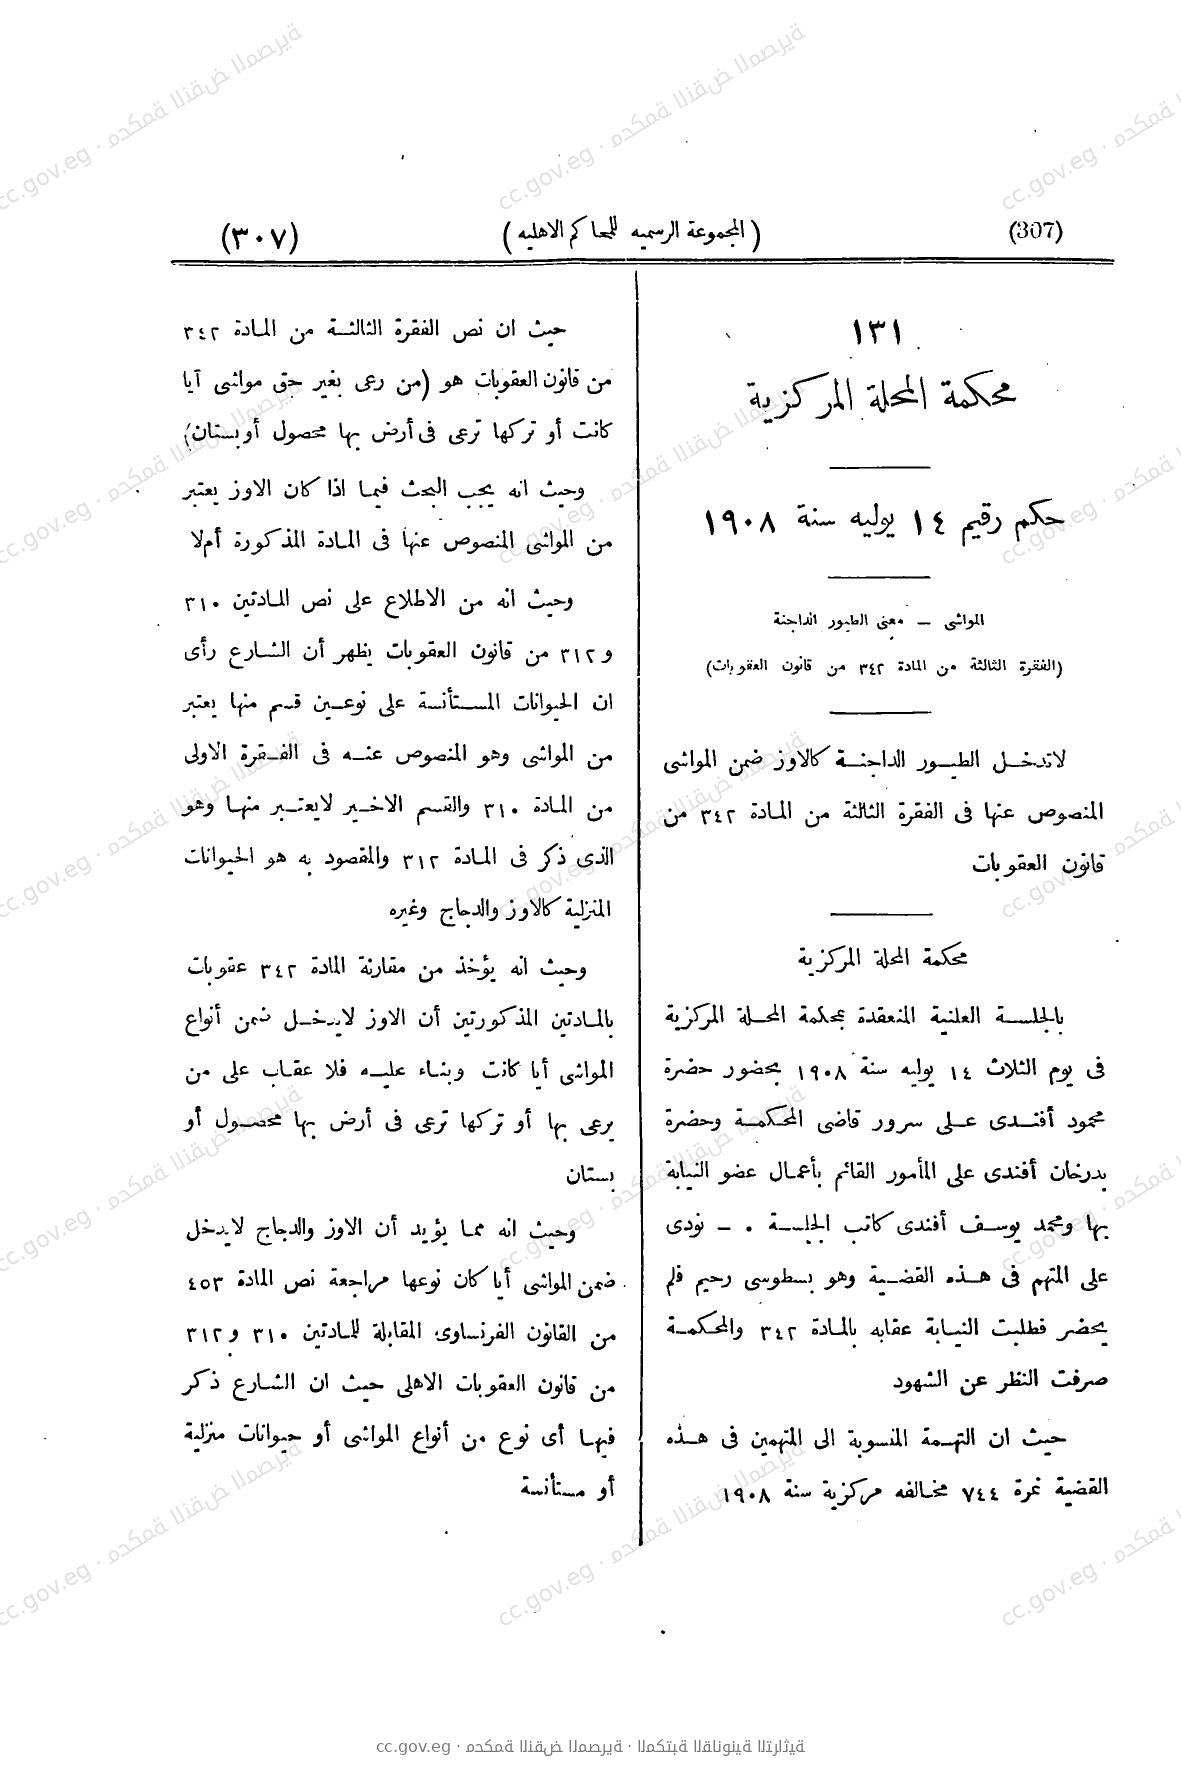 (307)
(المجموعة الرسميه للمحاكم الاهليه)
(٣٠٧)
١٣١
محكمة المحلة المركزية
حكم رقيم ١٤ يوليه سنة ١٩٠٨
المواشى — معنى الطيور الداجنة
(الفقرة الثالثة من المادة ٣٤٢ من قانون العقوبات)
لاتدخل الطيور الداجنة كالاوز ضمن المواشى
المنصوص عنها فى الفقرة الثالثة من المادة ٣٤٢ من
قانون العقوبات
محكمة المحلة المركزية
بالجلسة العلنية المنعقدة بمحكمة المحلة المركزية
فى يوم الثلاث ١٤ يوليه سنة ١٩٠٨ بحضور حضرة
محمود أفندى على سرور قاضى المحكمة وحضرة
بدرخان أفندى على المأمور القائم بأعمال عضو النيابة
بها ومحمد يوسف أفندى كاتب الجلسة . — نودى
على المتهم فى هذه القضية وهو بسطوسى رحيم فلم
يحضر فطلبت النيابة عقابه بالمادة ٣٤٢ والمحكمة
صرفت النظر عن الشهود
حيث ان التهمة المنسوبة الى المتهمين فى هذه
القضية نمرة ٧٤٤ مخالفه مركزية سنة ١٩٠٨
حيث ان نص الفقرة الثالثة من المادة ٣٤٢
من قانون العقوبات هو (من رعى بغير حق مواشى آيا
كانت أو تركها ترعى فى أرض بها محصول أو بستان)
وحيث انه يجب البحث فيما اذا كان الاوز يعتبر
من المواشى المنصوص عنها فى المادة المذكورة أم لا
وحيث انه من الاطلاع على نص المادتين ٣١٠
و ٣١٢ من قانون العقوبات يظهر أن الشارع رأى
ان الحيوانات المستأنسة على نوعين قسم منها يعتبر
من المواشى وهو المنصوص عنه فى الفقرة الاولى
من المادة ٣١٠ والقسم الاخير لايعتبر منها وهو
الذى ذكر فى المادة ٣١٢ والمقصود به هو الحيوانات
المنزلية كالاوز والدجاج وغيره
وحيث انه يؤخذ من مقارنة المادة ٣٤٢ عقوبات
بالمادتين المذكورتين أن الاوز لايدخل ضمن أنواع
المواشى أيا كانت وبناء عليه فلا عقاب على من
يرعى بها أو تركها ترعى فى أرض بها محصول أو
بستان
وحيث انه مما يؤيد أن الاوز والدجاج لايدخل
ضمن المواشى أيا كان نوعها مراجعة نص المادة ٤٥٣
من القانون الفرنساوى المقابلة للمادتين ٣١٠ و ٣١٢
من قانون العقوبات الاهلى حيث ان الشارع ذكر
فيها أى نوع من أنواع المواشى أو حيوانات منزلية
أو مستأنسة
cc.gov.eg · محكمة النقض المصرية · المكتبة القانونية التراثية